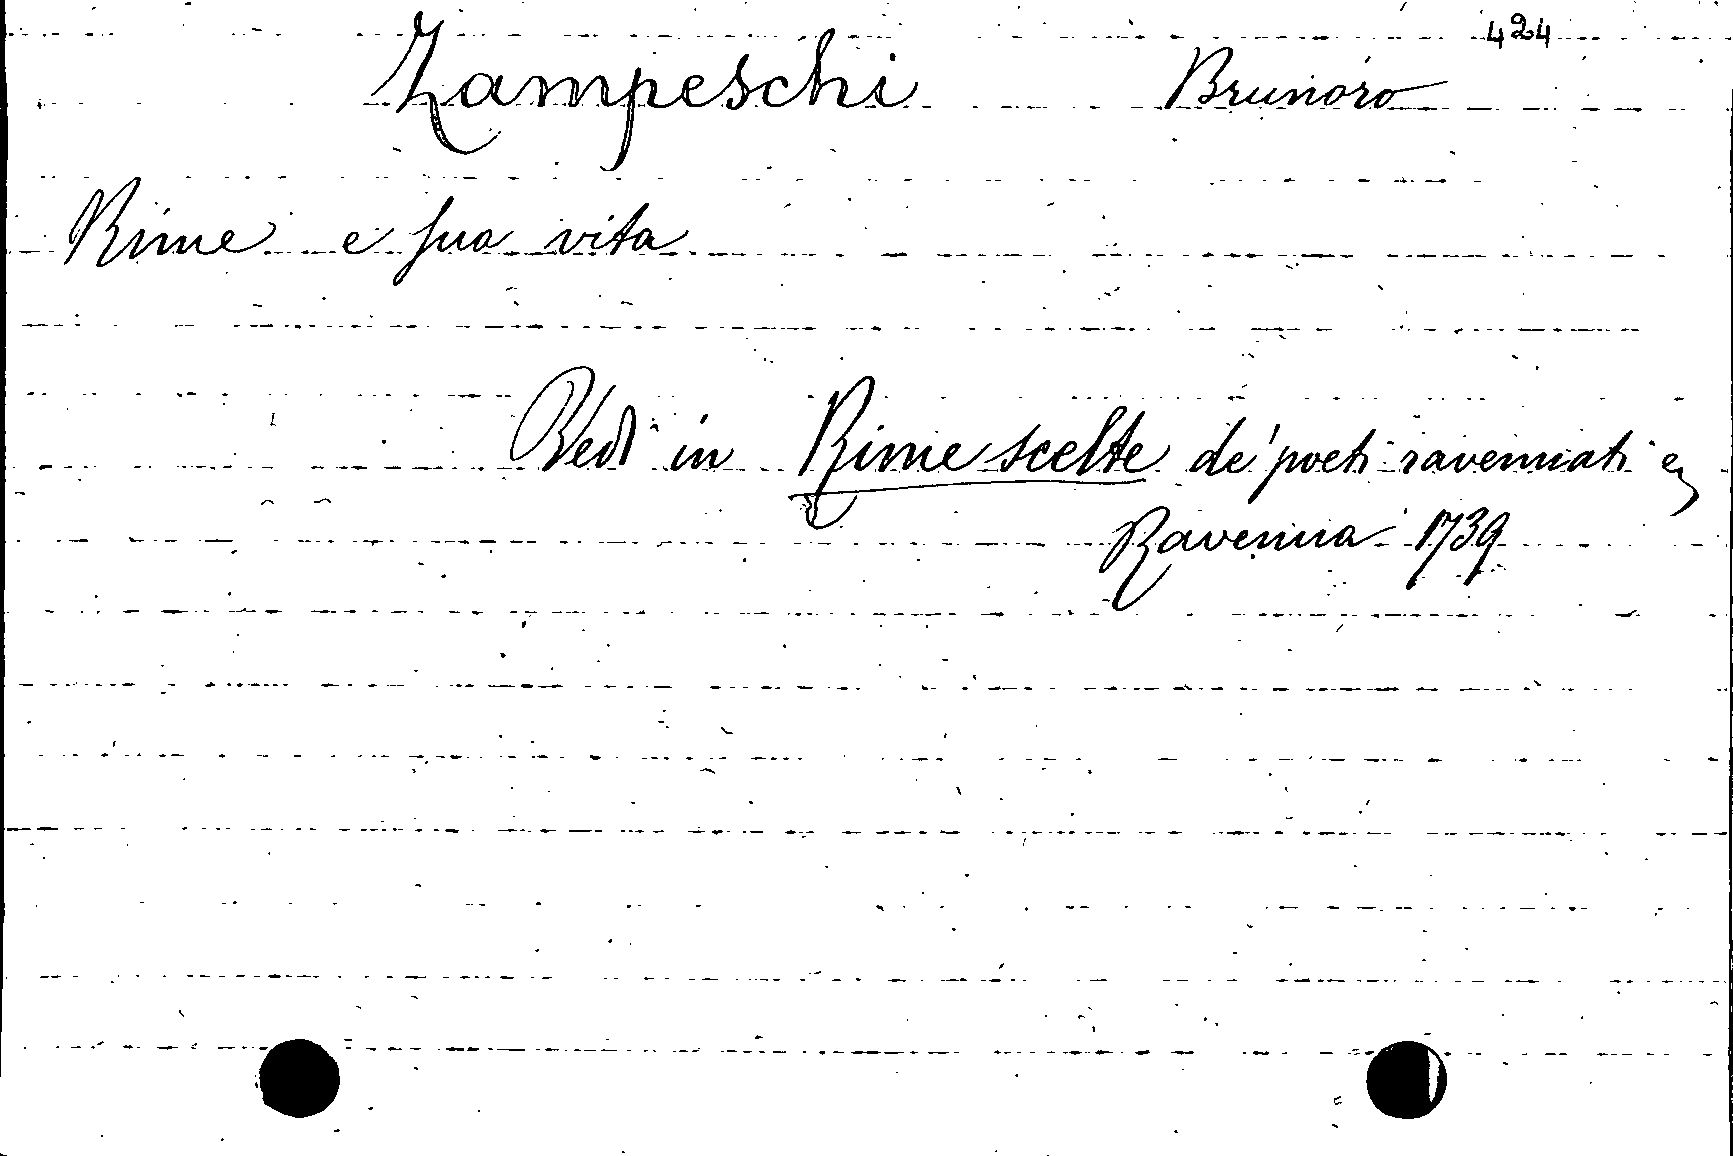 424
Zampeschi Brunoro
Rime e sua vita
Vedi in Rime scelte de' poeti ravennati
Ravenna 1739